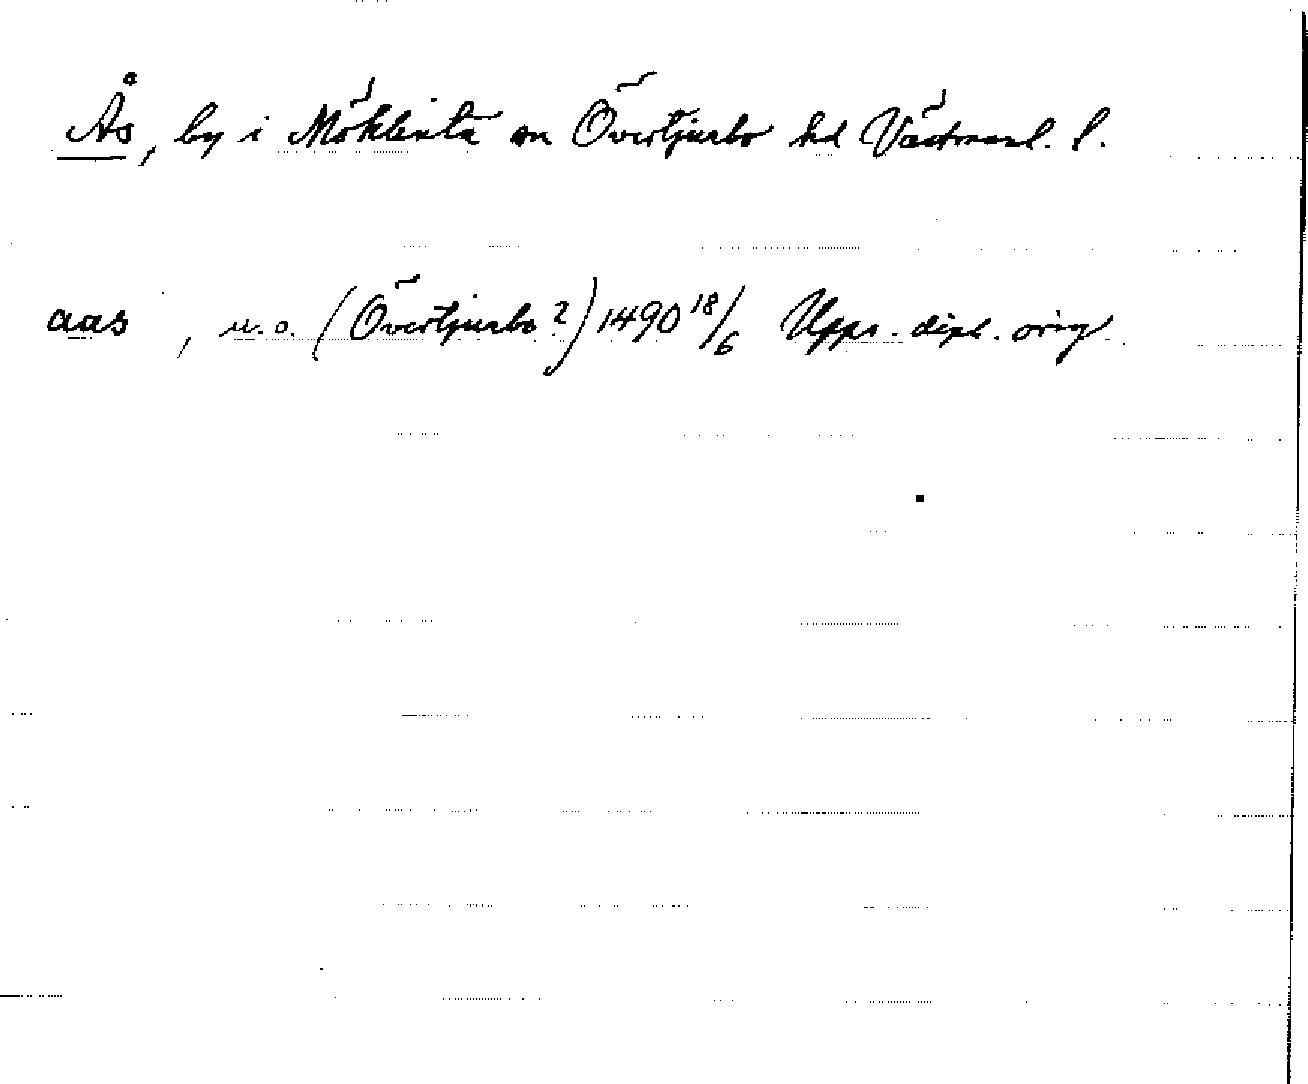 Ås, by i Möklinta sn Övertjurbo hd Västmanl. l.
aas , u.o. (Övertjurbo?) 1490 18/6 Upps. dipl. orig